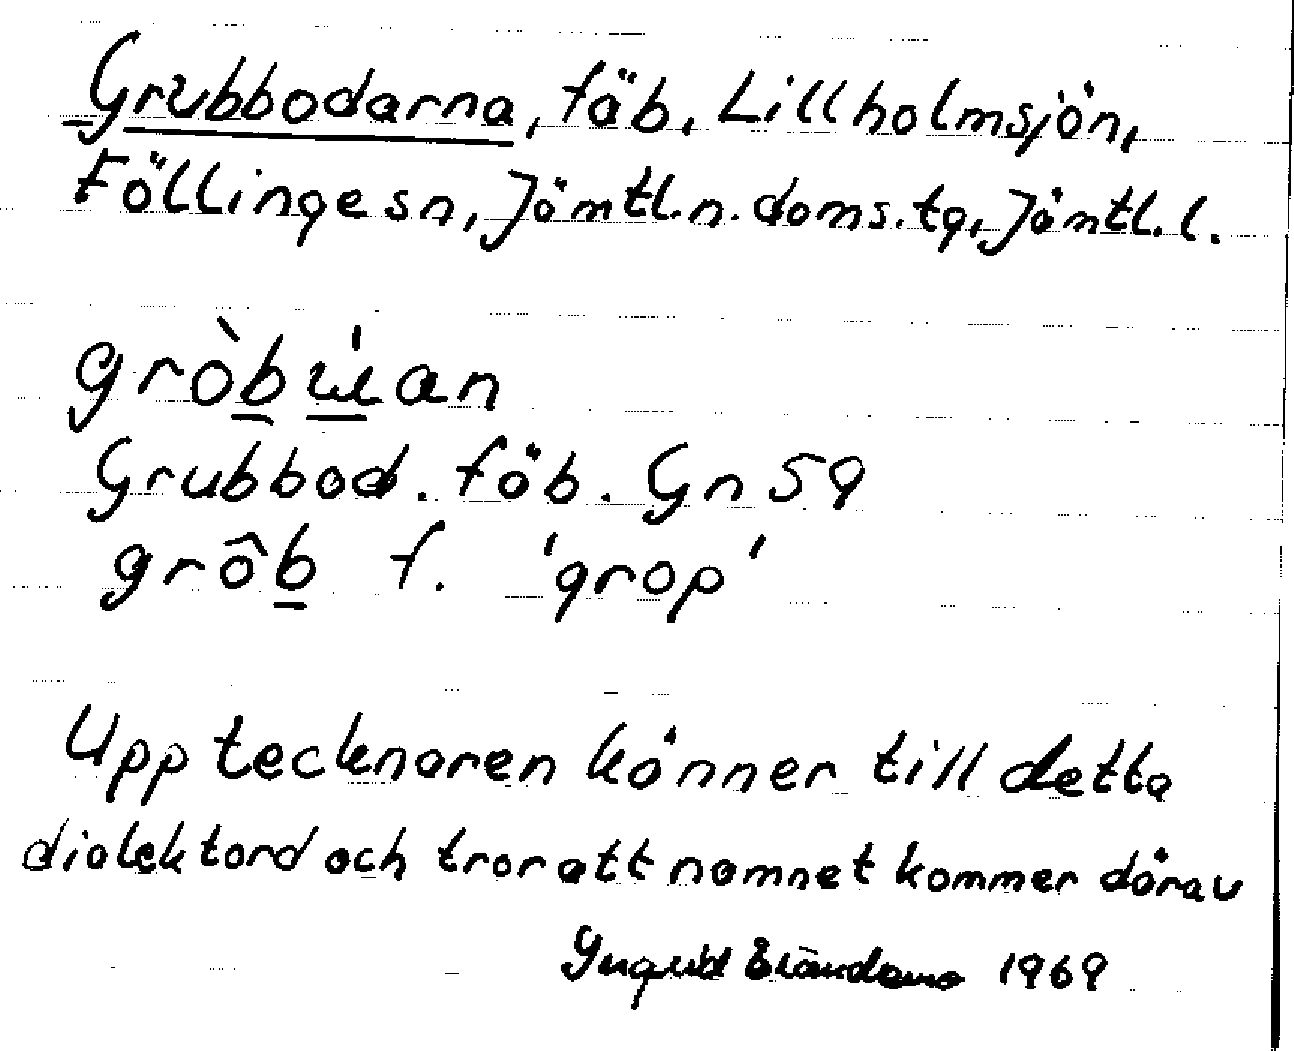 Grubbodarna, fäb, Lillholmsjön,
Föllinge sn, Jämtl.n.doms.tg, Jämtl.l.
gròb
Grubbod. fäb. Gn 59
grôb f. 'grop'
Upptecknaren känner till detta
dialektord och tror att namnet kommer därav
1969